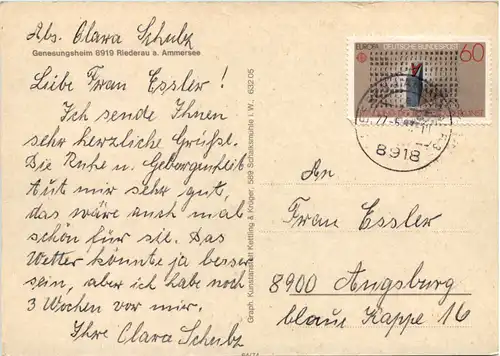 Abs. Clara Schulz
Genesungsheim 8919 Riederau a. Ammersee
Liebe Frau Essler!
Ich sende Ihnen
sehr herzliche Grüße.
Die Ruhe u. Geborgenheit
tut mir sehr gut,
das wäre auch mal
schön für sie. Das
Wetter könnte ja besser
sein, aber ich habe noch
3 Wochen vor mir.
Ihre Clara Schulz
Graph. Kunstanstalt Kettling & Krüger, 589 Schalksmühle i. W. 632 05
EUROPA DEUTSCHE BUNDESPOST 60
8918
An
Frau Essler
8900 Augsburg
blaue Kappe 16